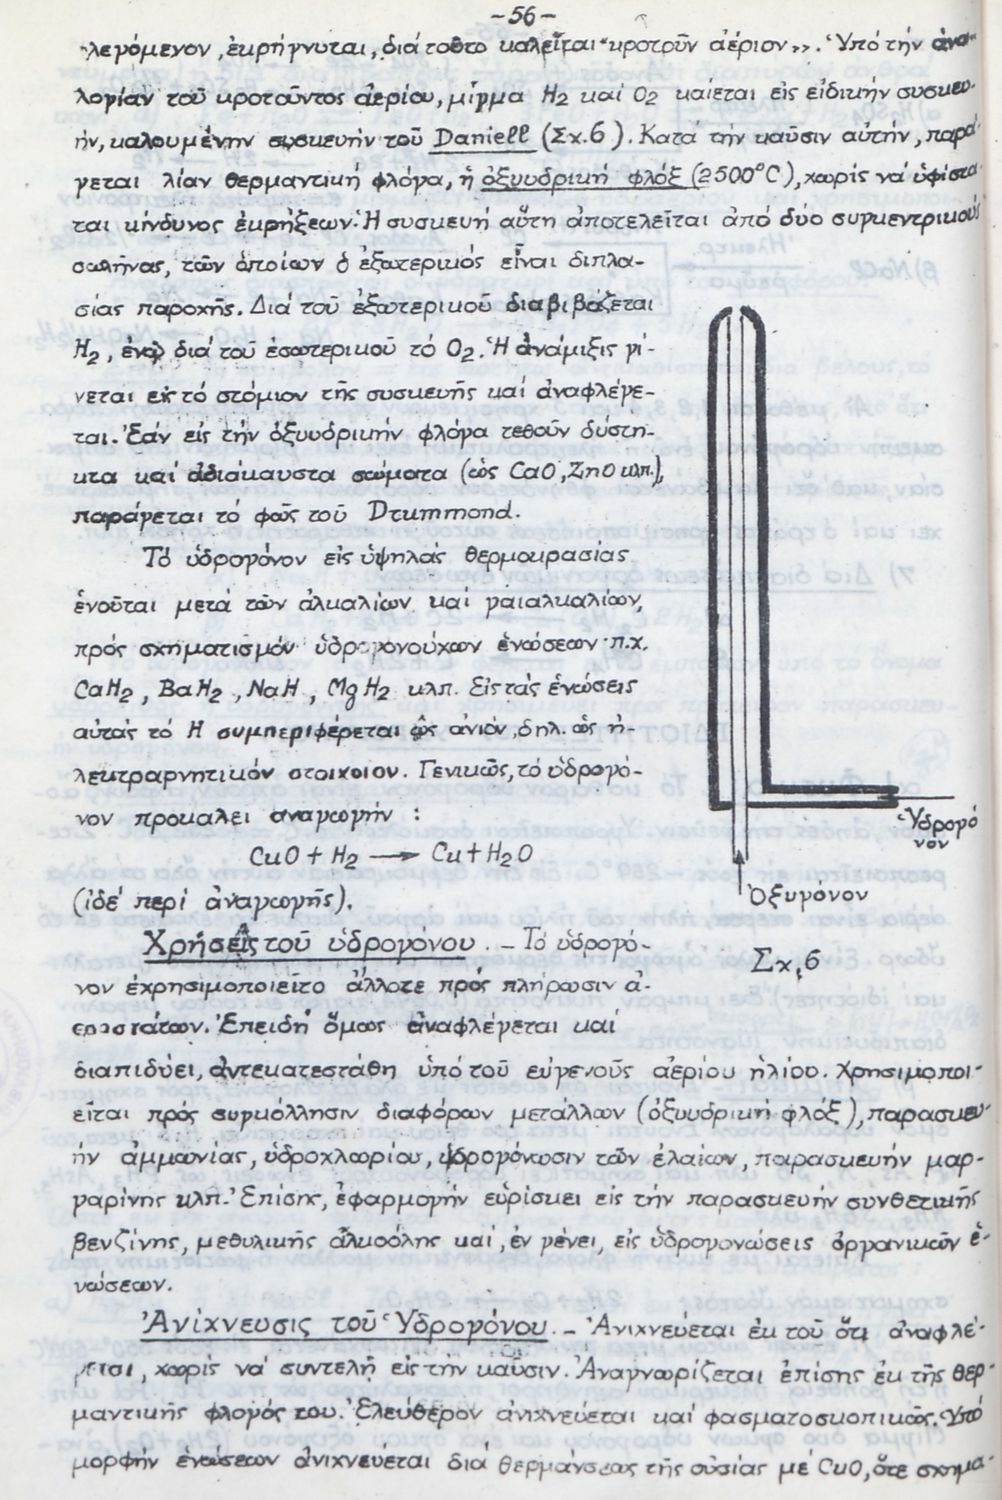 -56-
λεγόμενον, ἐκρήγνυται, διά τοῦτο καλεῖται "κροτοῦν ἀέριον". Ὑπό τήν ἀνα-
λογίαν τοῦ κροτοῦντος ἀερίου, μῖγμα H2 καί O2 καίεται εἰς εἰδικήν συσκευ-
ήν, καλουμένην συσκευήν τοῦ Daniell (Σχ.6). Κατά τήν καῦσιν αὐτήν, παρά-
γεται λίαν θερμαντική φλόγα, ἡ ὀξυυδρική φλόξ (2500°C), χωρίς νά ὑφίστα-
ται κίνδυνος ἐκρήξεων. Ἡ συσκευή αὕτη ἀποτελεῖται ἀπό δύο συγκεντρικούς
σωλῆνας, τῶν ὁποίων ὁ ἐξωτερικός εἶναι διπλα-
σίας παροχῆς. Διά τοῦ ἐξωτερικοῦ διαβιβάζεται
H2, ἐνῶ διά τοῦ ἐσωτερικοῦ τό O2. Ἡ ἀνάμιξις γί-
νεται εἰς τό στόμιον τῆς συσκευῆς καί ἀναφλέγε-
ται. Ἐάν εἰς τήν ὀξυυδρικήν φλόγα τεθοῦν δύστη-
κτα καί ἀδιάκαυστα σώματα (ὡς CaO, ZnO κλπ.),
παράγεται τό φῶς τοῦ Drummond.
Τό ὑδρογόνον εἰς ὑψηλάς θερμοκρασίας
ἑνοῦται μετά τῶν ἀλκαλίων καί γαιαλκαλίων,
πρός σχηματισμόν ὑδρογονούχων ἑνώσεων π.χ.
CaH2, BaH2, NaH, MgH2 κλπ. Εἰς τάς ἑνώσεις
αὐτάς τό H συμπεριφέρεται ὡς ἀνιόν, δηλ. ὡς ἠ-
λεκτραρνητικόν στοιχοιον. Γενικῶς, τό ὑδρογό-
νον προκαλεῖ ἀναγωγήν :
CuO + H2 → Cu + H2O
(ἰδέ περί ἀναγωγῆς).
Χρήσεις τοῦ ὑδρογόνου. - Τό ὑδρογό-
νον ἐχρησιμοποιεῖτο ἄλλοτε πρός πλήρωσιν ἀ-
εροστάτων. Ἐπειδή ὅμως ἀναφλέγεται καί
διαπιδύει, ἀντεκατεστάθη ὑπό τοῦ εὐγενοῦς ἀερίου ἡλίου. Χρησιμοποι-
εῖται πρός συγκόλλησιν διαφόρων μετάλλων (ὀξυυδρική φλόξ), παρασκευ-
ήν ἀμμωνίας, ὑδροχλωρίου, ὑδρογόνωσιν τῶν ἐλαίων, παρασκευήν μαρ-
γαρίνης κλπ. Ἐπίσης, ἐφαρμογήν εὑρίσκει εἰς τήν παρασκευήν συνθετικῆς
βενζίνης, μεθυλικῆς ἀλκοόλης καί, ἐν γένει, εἰς ὑδρογονώσεις ὀργανικῶν ἑ-
νώσεων.
Ἀνίχνευσις τοῦ Ὑδρογόνου. - Ἀνιχνεύεται ἐκ τοῦ ὅτι ἀναφλέ-
γεται, χωρίς νά συντελῇ εἰς τήν καῦσιν. Ἀναγνωρίζεται ἐπίσης ἐκ τῆς θερ-
μαντικῆς φλογός του. Ἐλεύθερον ἀνιχνεύεται καί φασματοσκοπικῶς. Ὑπό
μορφήν ἑνώσεων ἀνιχνεύεται διά θερμάνσεως τῆς οὐσίας μέ CuO, ὅτε σχημα-
Ὑδρογό
νον
Ὀξυγόνον
Σχ. 6